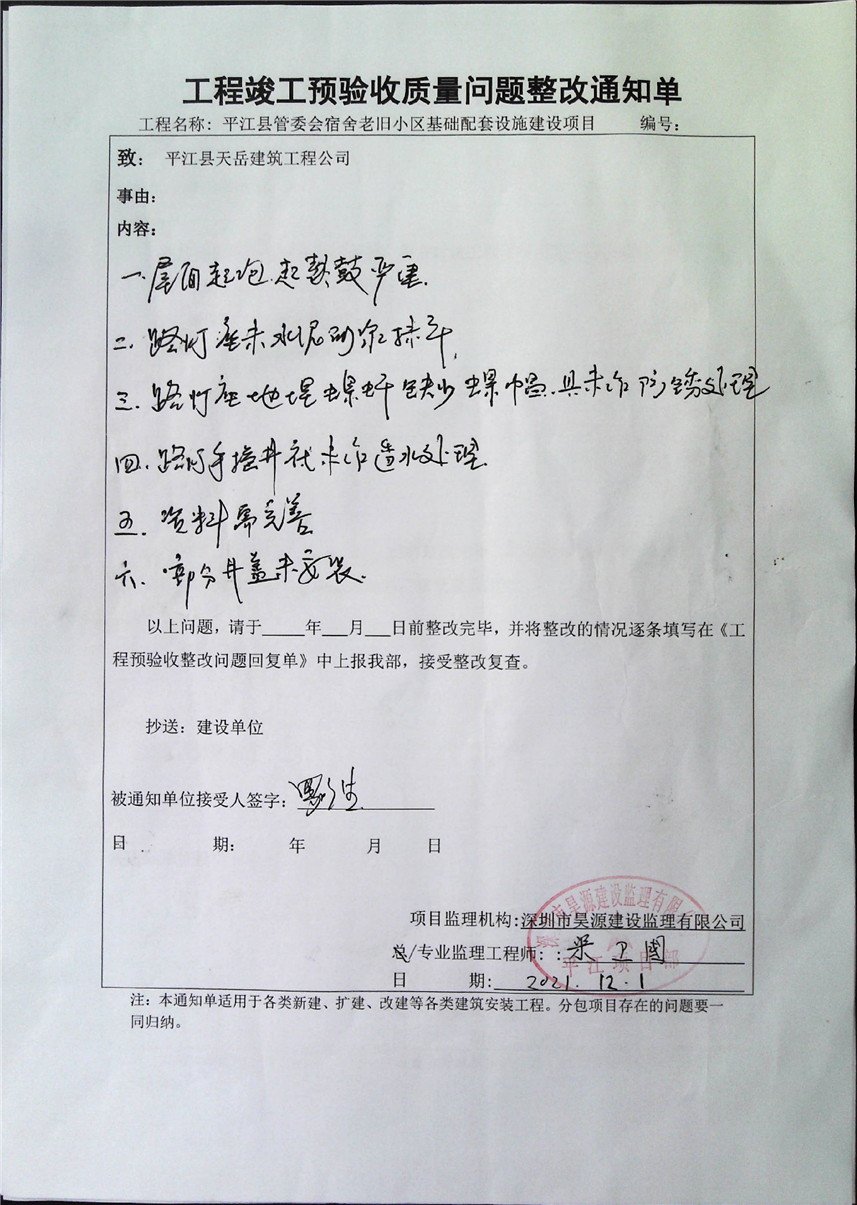 工程竣工预验收质量问题整改通知单
工程名称: 平江县管委会宿舍老旧小区基础配套设施建设项目 编号:
致: 平江县天岳建筑工程公司
事由:
内容:
一. 屋面起泡.起鼓严重.
二. 路灯座未水泥砂浆抹平,
三. 路灯座地埋螺杆缺少螺帽.且未作防锈处理
四. 路灯手接井底未作透水处理.
五. 资料需完善
六. 部分井盖未安装.
以上问题，请于____年___月___日前整改完毕，并将整改的情况逐条填写在《工
程预验收整改问题回复单》中上报我部，接受整改复查。
抄送：建设单位
被通知单位接受人签字:
日 期: 年 月 日
项目监理机构:深圳市昊源建设监理有限公司
总/专业监理工程师: : 吴卫国
日 期: 2021.12.1
深圳市昊源建设监理有限公司
平江项目部
注：本通知单适用于各类新建、扩建、改建等各类建筑安装工程。分包项目存在的问题要一
同归纳。